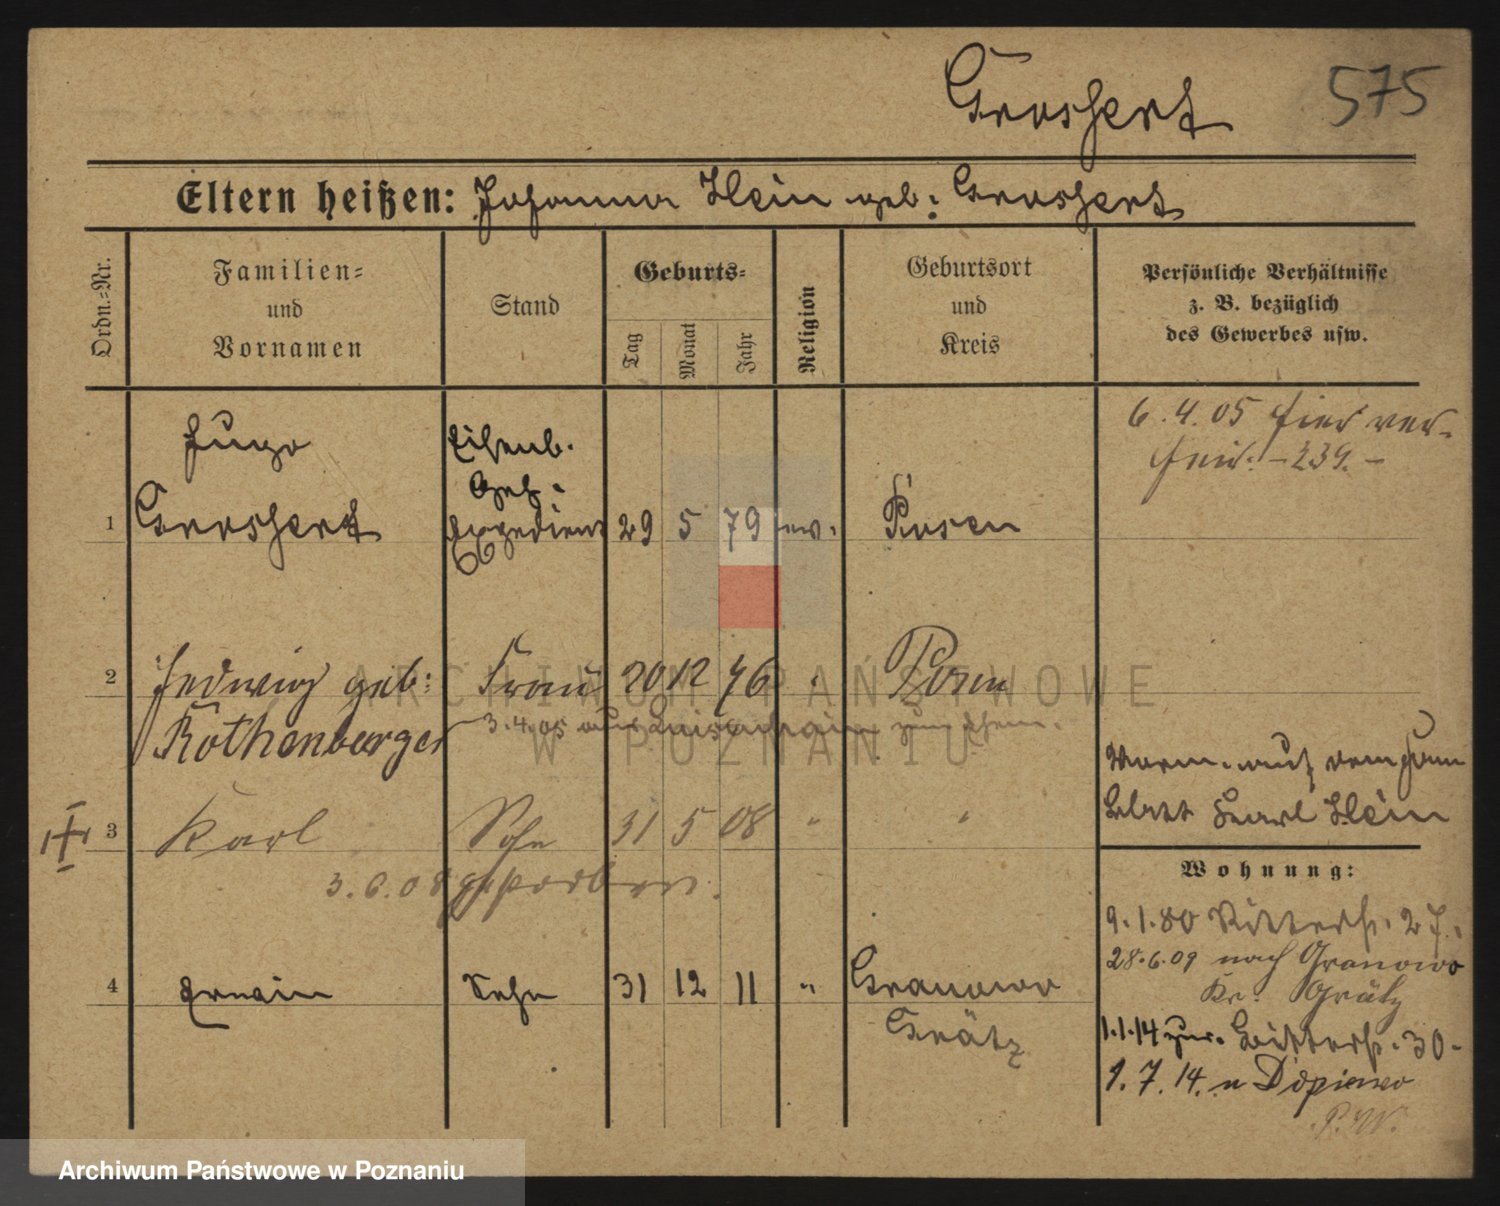 Groshert 575
Eltern heißen: Johanna Klein geb: Groshert
Ordn.-Nr.
Familien-
und
Vornamen
Stand
Geburts-
Tag
Monat
Jahr
Religion
Geburtsort
und
Kreis
Persönliche Verhältnisse
z. B. bezüglich
des Gewerbes usw.
6.4.05 hier ver-
heir. -239.-
Hugo
Eisenb.
Geh.
1 Groshert Expedient 29 5 79 ev. Posen
2 Hedwig geb: Frau 20 12 76 " Posen
Rothenberger
3.4.05 aus zum Ehem.
Vorm. auf dem
Blatt Karl Klein
3 Karl Sohn 31 5 08 " "
3.6.08 gestorben.
Wohnung:
9.1.80 Ritterstr. 27.
28.6.09 nach Granowo
Kr. Grätz
4 Erwin Sohn 31 12 11 " Granowo
Grätz
1.1.14 zur. Ritterstr. 30.
1.7.14. n Dopiewo
P.W.
ARCHIWUM PAŃSTWOWE
W POZNANIU
Archiwum Państwowe w Poznaniu